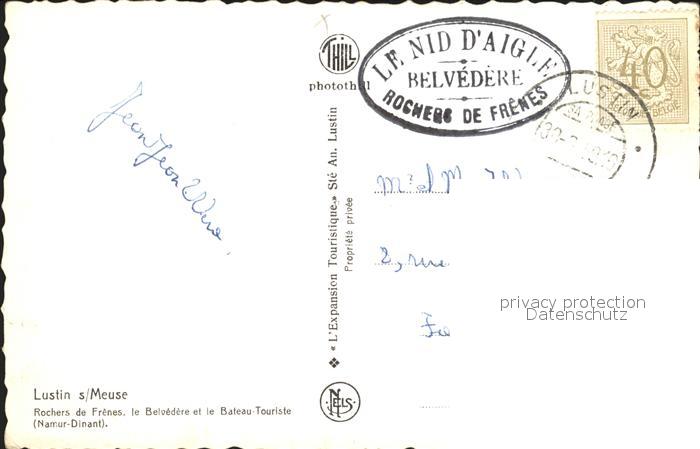 THILL
photothill
LE NID D'AIGLE
BELVÉDÈRE
ROCHERS DE FRÊNES
40
LUSTIN
« L'Expansion Touristique » Sté An. Lustin
Propriété privée
2, rue
privacy protection
Datenschutz
Lustin s/Meuse
Rochers de Frênes, le Belvédère et le Bateau-Touriste
(Namur-Dinant).
NELS